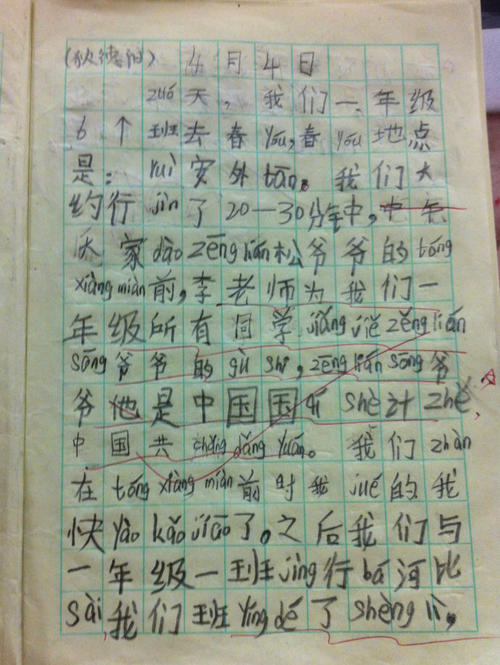 4月4日
zuó天,我们一年级
6个班去春yóu,春yóu地点
是:ruì安外tān。我们大
约行jìn了20—30分钟,
大家dào zēng lián松爷爷的tóng
xiàng miàn前,李老师为我们一
年级所有同学jiǎng jiě zēng lián
sōng爷爷的gù shi,zēng lián sōng爷
爷他是中国国qí shè计zhě,
中国共chǎng dǎng yuán。我们zhàn
在tóng xiàng miàn前时我jué的我
快yào kāo jiāo了。之后我们与
一年级一班jìng行bá河比
sài,我们班yíng dé了shèng lì,